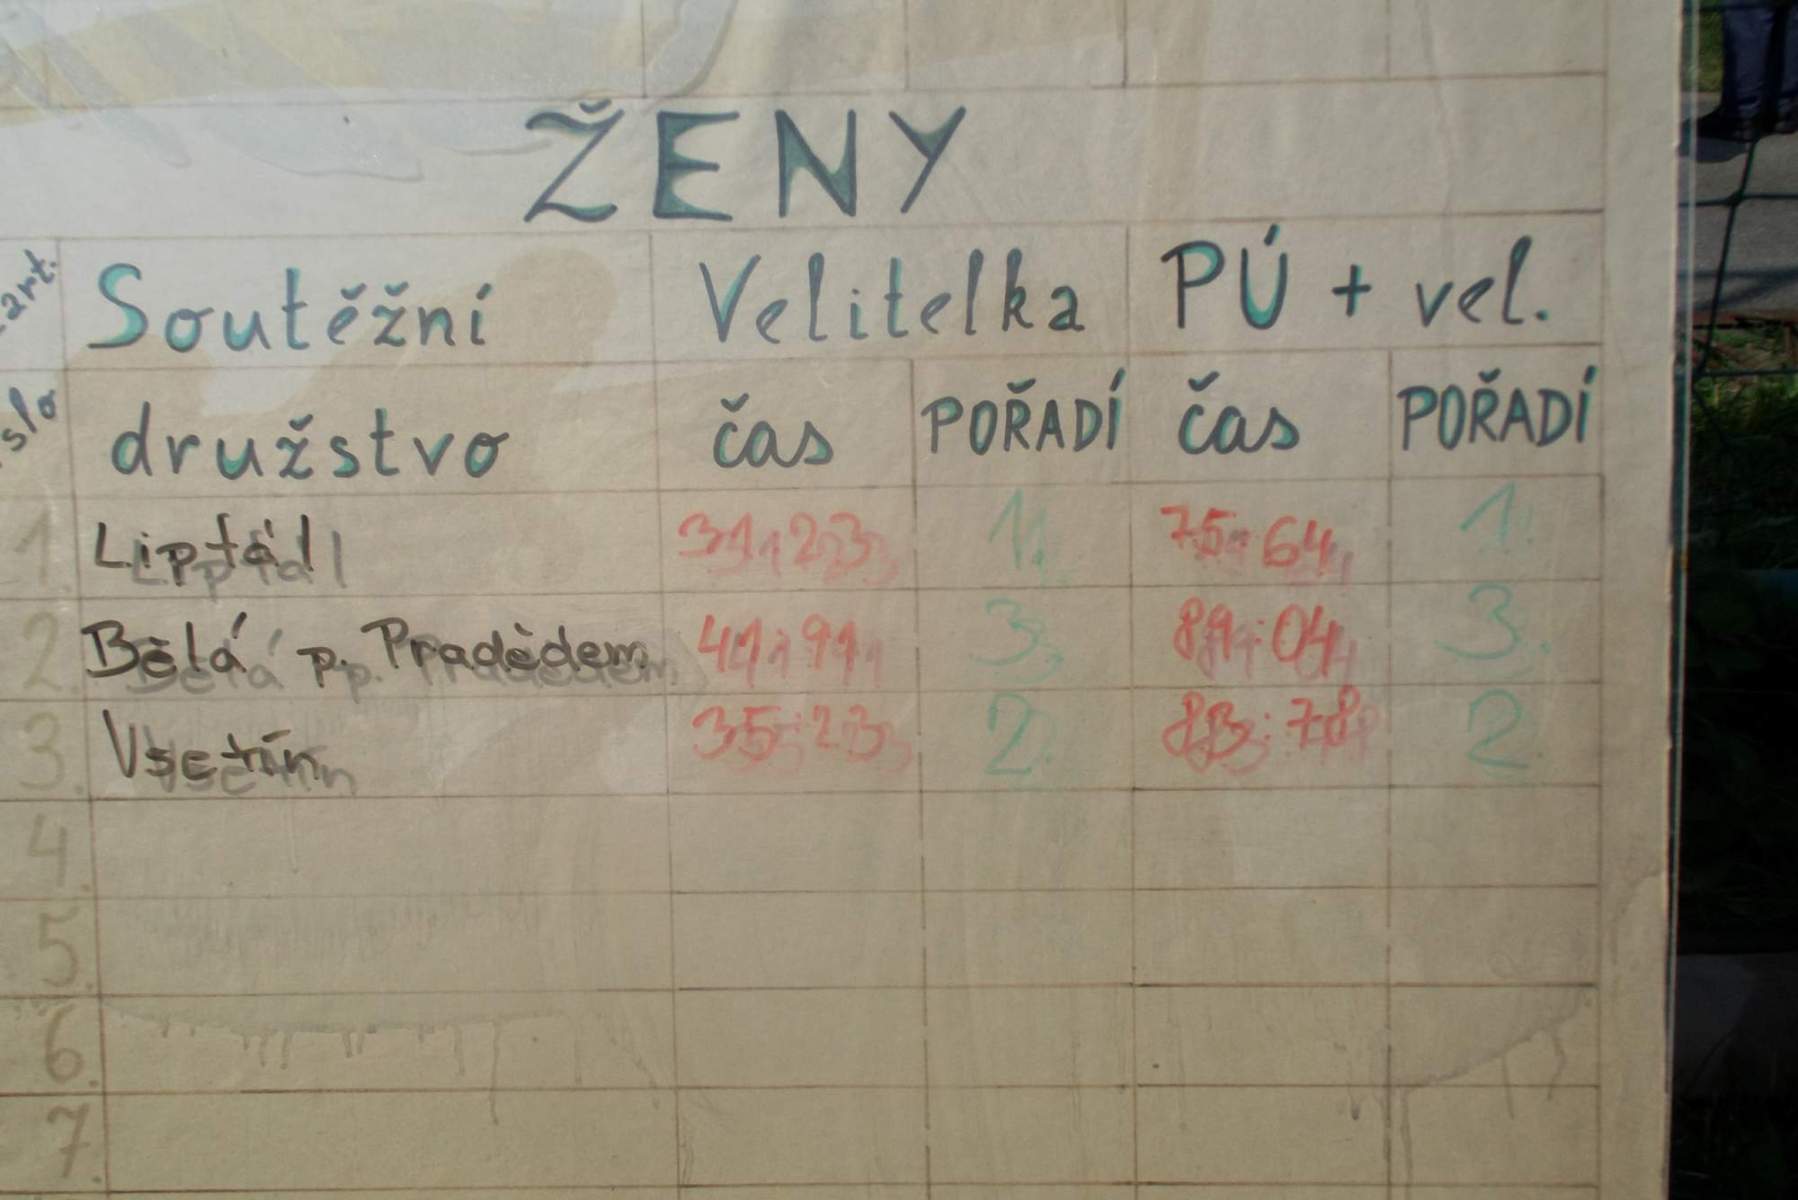 ŽENY
art. Soutěžní Velitelka PÚ + vel.
slo družstvo čas POŘADÍ čas POŘADÍ
1. Liptál 31:23 1. 75:64 1.
2. Bělá p. Pradědem 41:91 3. 89:04 3.
3. Vsetín 35:23 2. 83:78 2.
4.
5.
6.
7.